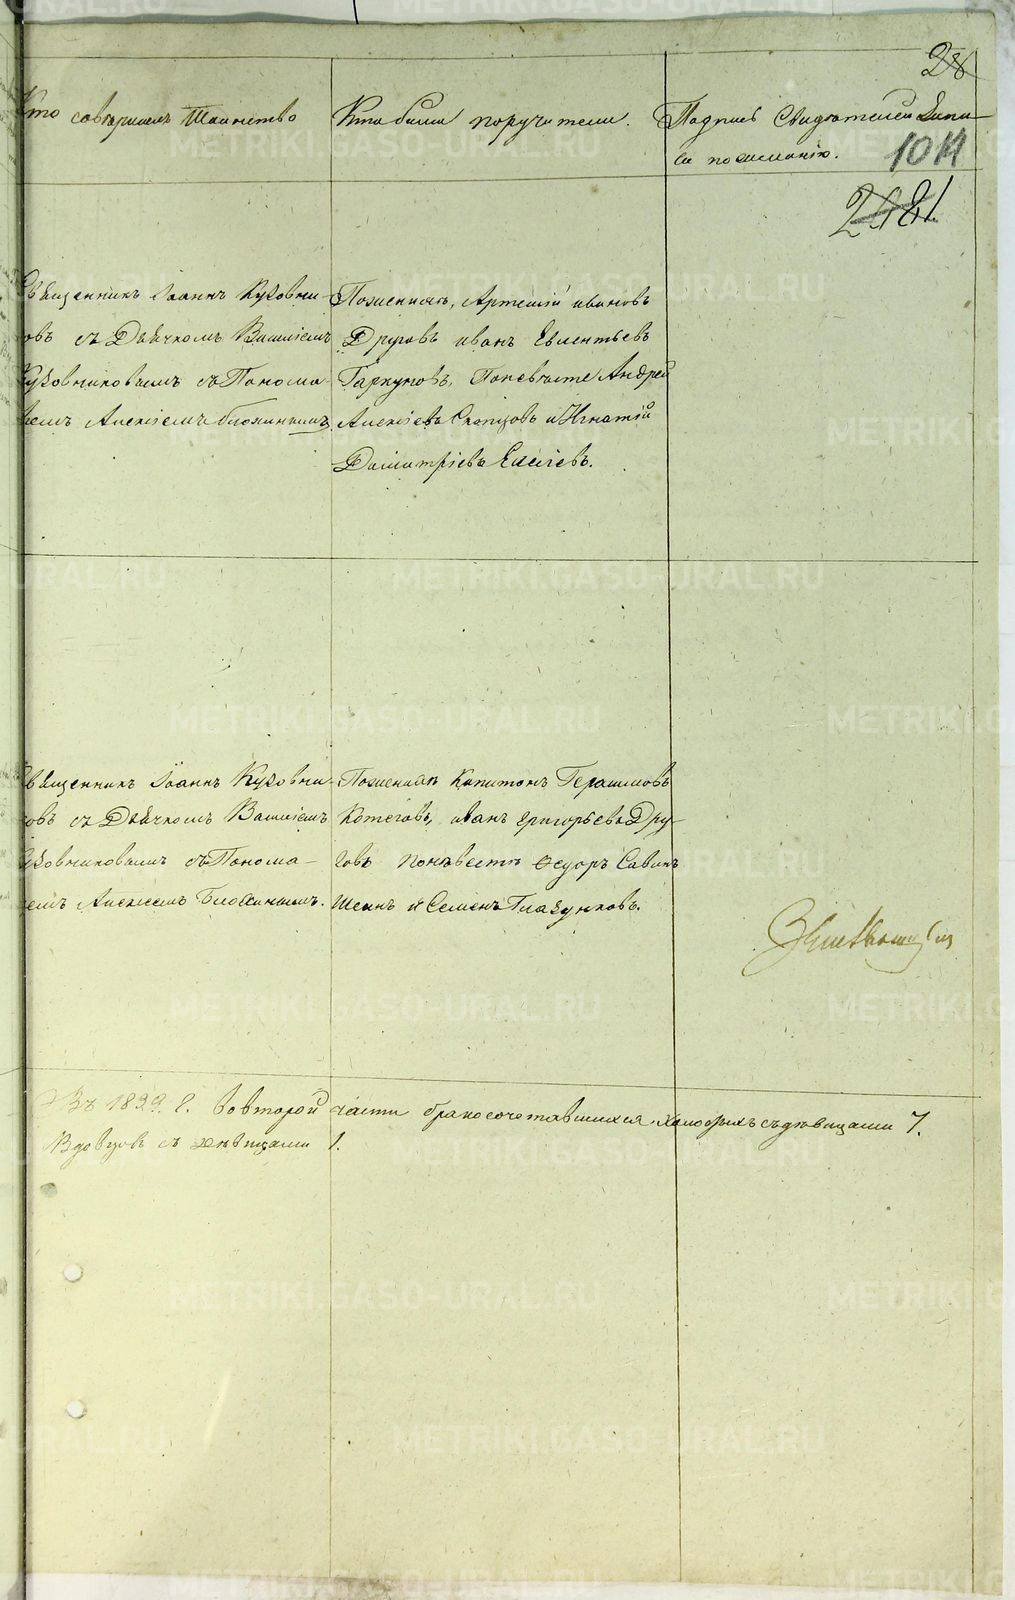 28
Кто совершалъ Таинство
Кто были поручители.
Подпись Свидѣтелей Запи-
си по желанію.
1011
281.
Священникъ Іоаннъ Куховни-
овъ съ Дьячкомъ Василіемъ
Куховниковымъ съ Понома-
емъ Алексіемъ
По женихѣ, Артемій ивановъ
Друговъ иванъ Евлентьевъ
Гаркуновъ, По невѣсте Андрей
Алексіевъ Скопцовъ и Игнатій
Димитріевъ Елсіевъ.
Священникъ Іоаннъ Куховни-
овъ съ Дьячкомъ Василіемъ
уховниковымъ съ Понома-
емъ Алексіемъ
По женихѣ Капитонъ Герасимовъ
Котеговъ, иванъ григорьевъ Дру-
говъ По невесте Ѳедоръ Савинъ
Шеинъ и Семенъ Глазунковъ.
Въ 1839 г. во второй части бракосочетавшихся холостыхъ съ дѣвицами 7.
Вдовцовъ съ дѣвицами 1.
METRIKI.GASO-URAL.RU